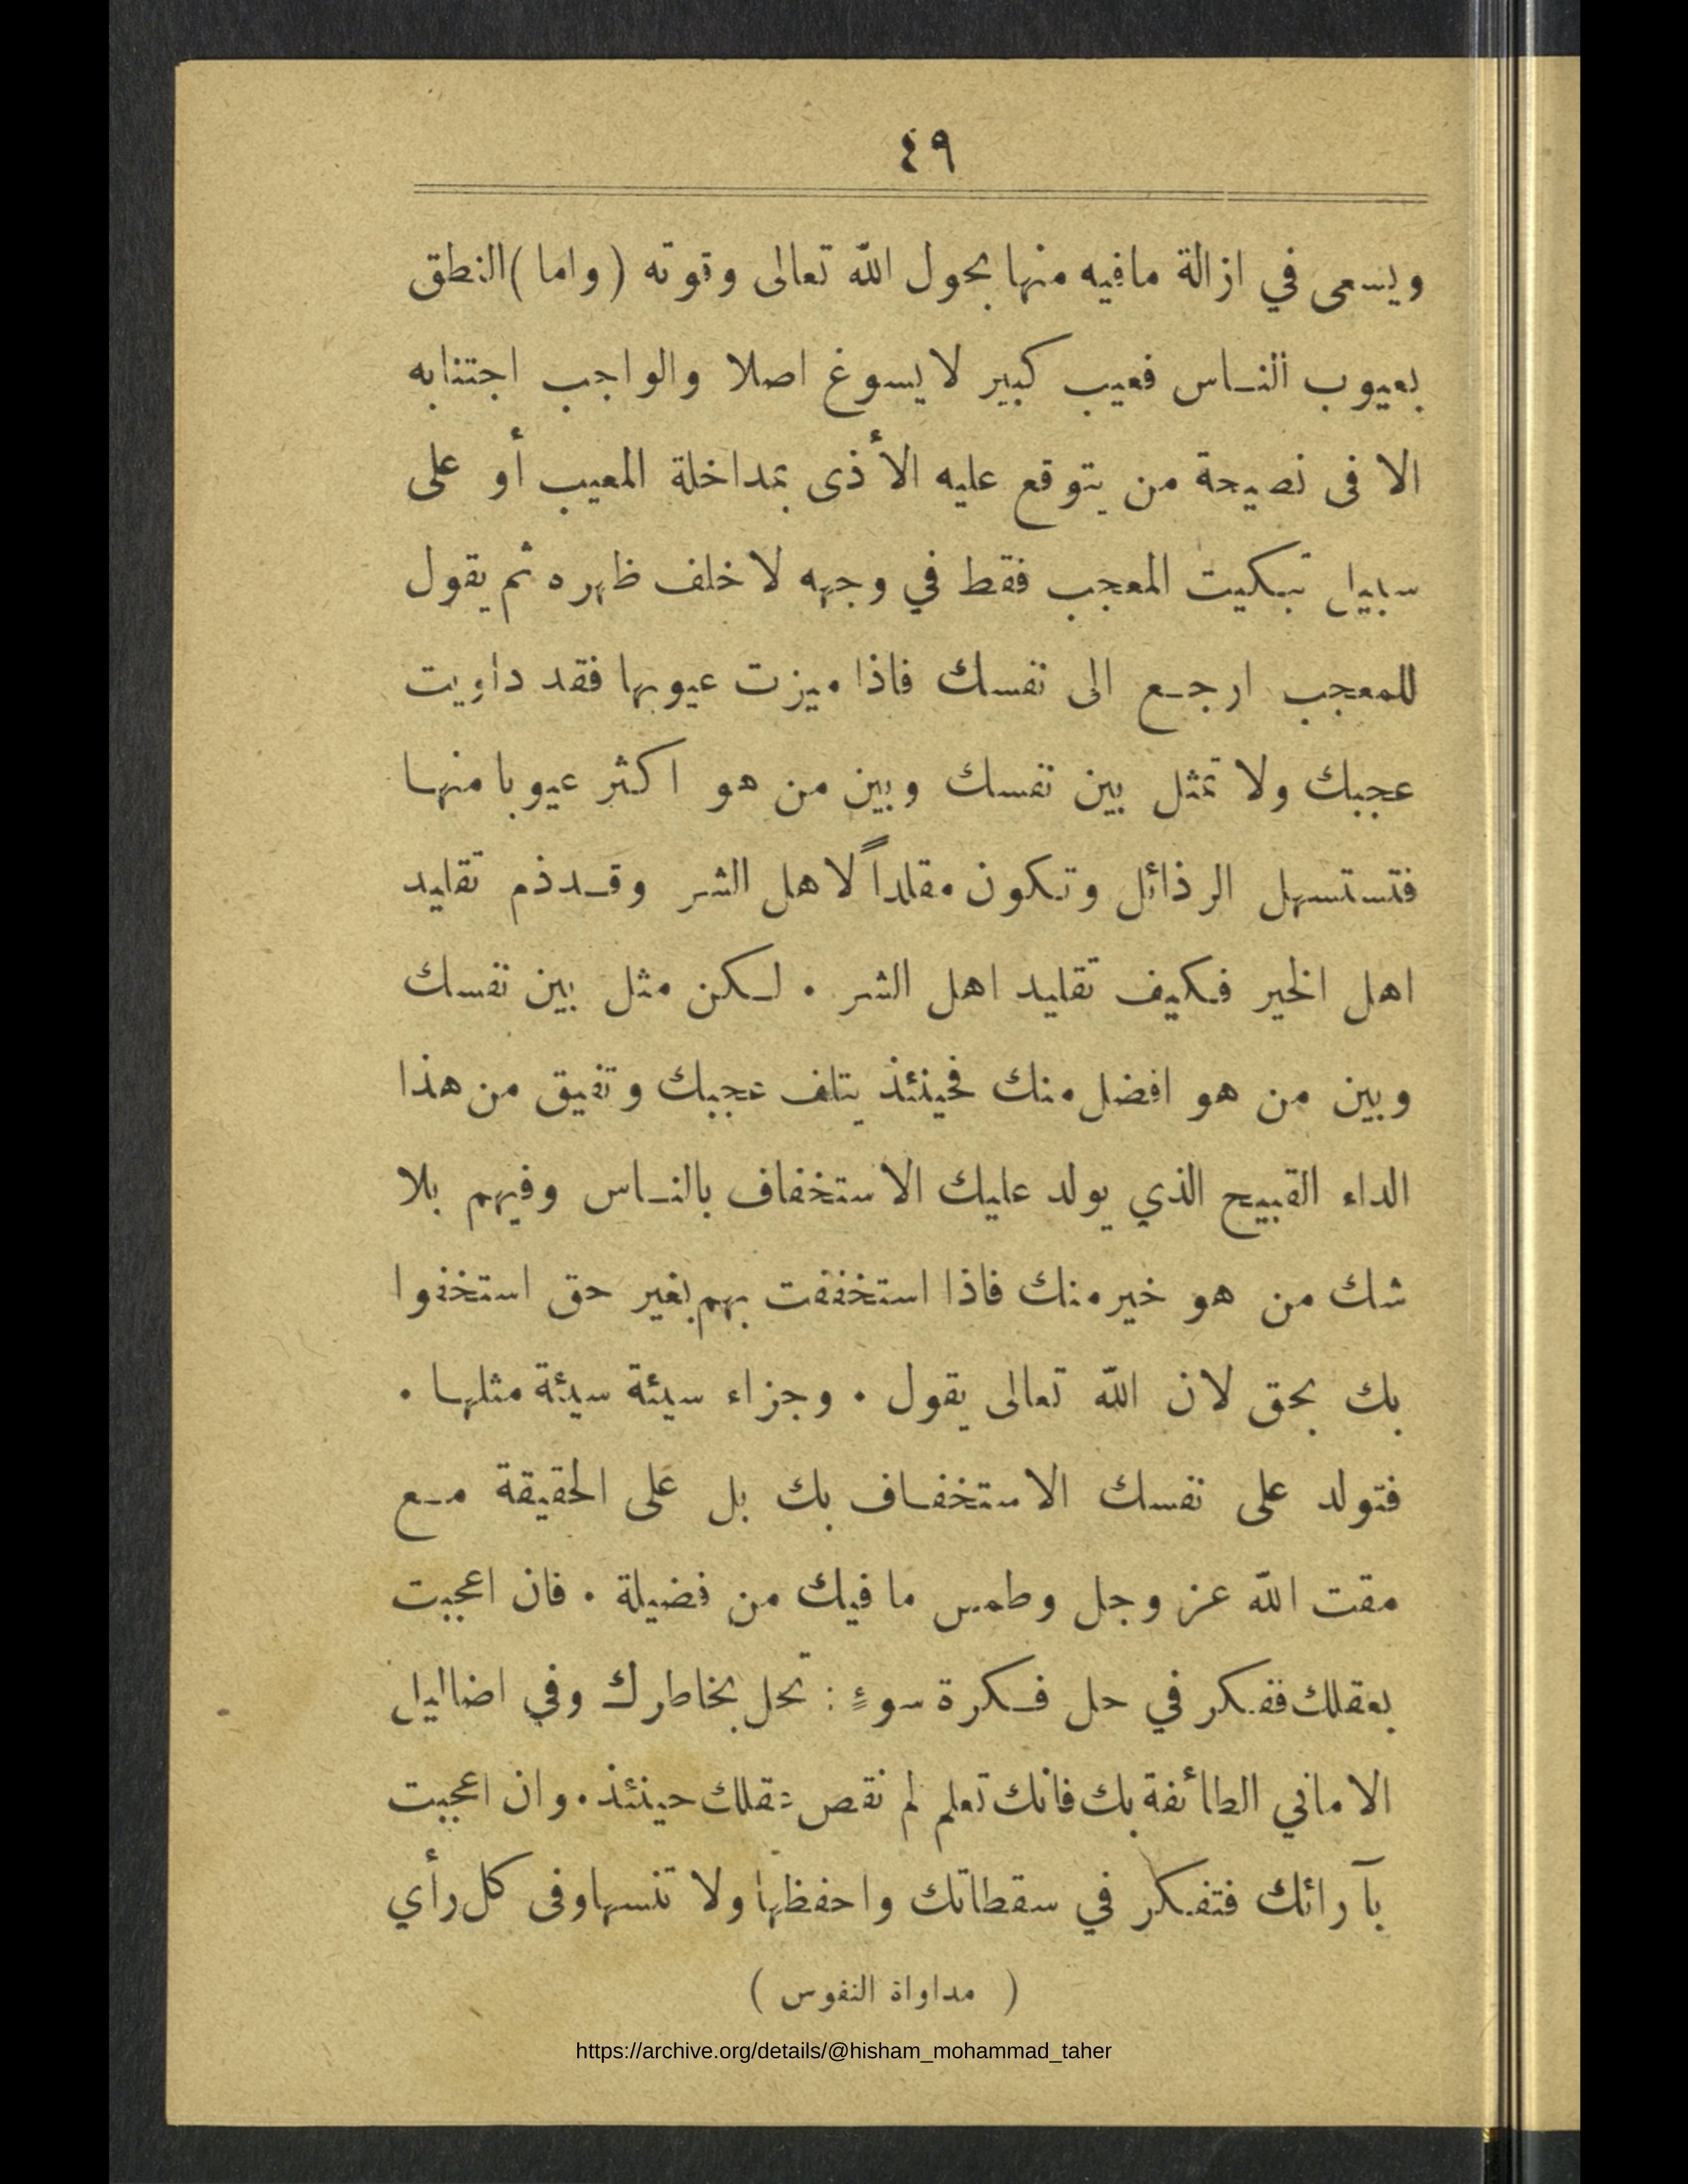 ٤٩
ويسعى في ازالة مافيه منها بحول الله تعالى وقوته (واما) النطق
بعيوب الناس فعيب كبير لا يسوغ اصلا والواجب اجتنابه
الا فى نصيحة من يتوقع عليه الأذى بمداخلة المعيب أو على
سبيل تبكيت المعجب فقط في وجهه لا خلف ظهره ثم يقول
للمعجب ارجع الى نفسك فاذا ميزت عيوبها فقد داويت
عجبك ولا تمثل بين نفسك وبين من هو اكثر عيوبا منها
فتستسهل الرذائل وتكون مقلداً لاهل الشر وقد ذم تقليد
اهل الخير فكيف تقليد اهل الشر . لكن مثل بين نفسك
وبين من هو افضل منك فحينئذ يتلف عجبك وتفيق من هذا
الداء القبيح الذي يولد عليك الاستخفاف بالناس وفيهم بلا
شك من هو خير منك فاذا استخففت بهم بغير حق استخفوا
بك بحق لان الله تعالى يقول . وجزاء سيئة سيئة مثلها .
فتولد على نفسك الاستخفاف بك بل على الحقيقة مع
مقت الله عز وجل وطمس ما فيك من فضيلة . فان اعجبت
بعقلك ففكر في حل فكرة سوءٍ : تحل بخاطرك وفي اضاليل
الاماني الطائفة بك فانك تعلم لم نقص عقلك حينئذ . وان اعجبت
بآرائك فتفكر في سقطاتك واحفظها ولا تنسها وفى كل رأي
( مداواة النفوس )
https://archive.org/details/@hisham_mohammad_taher